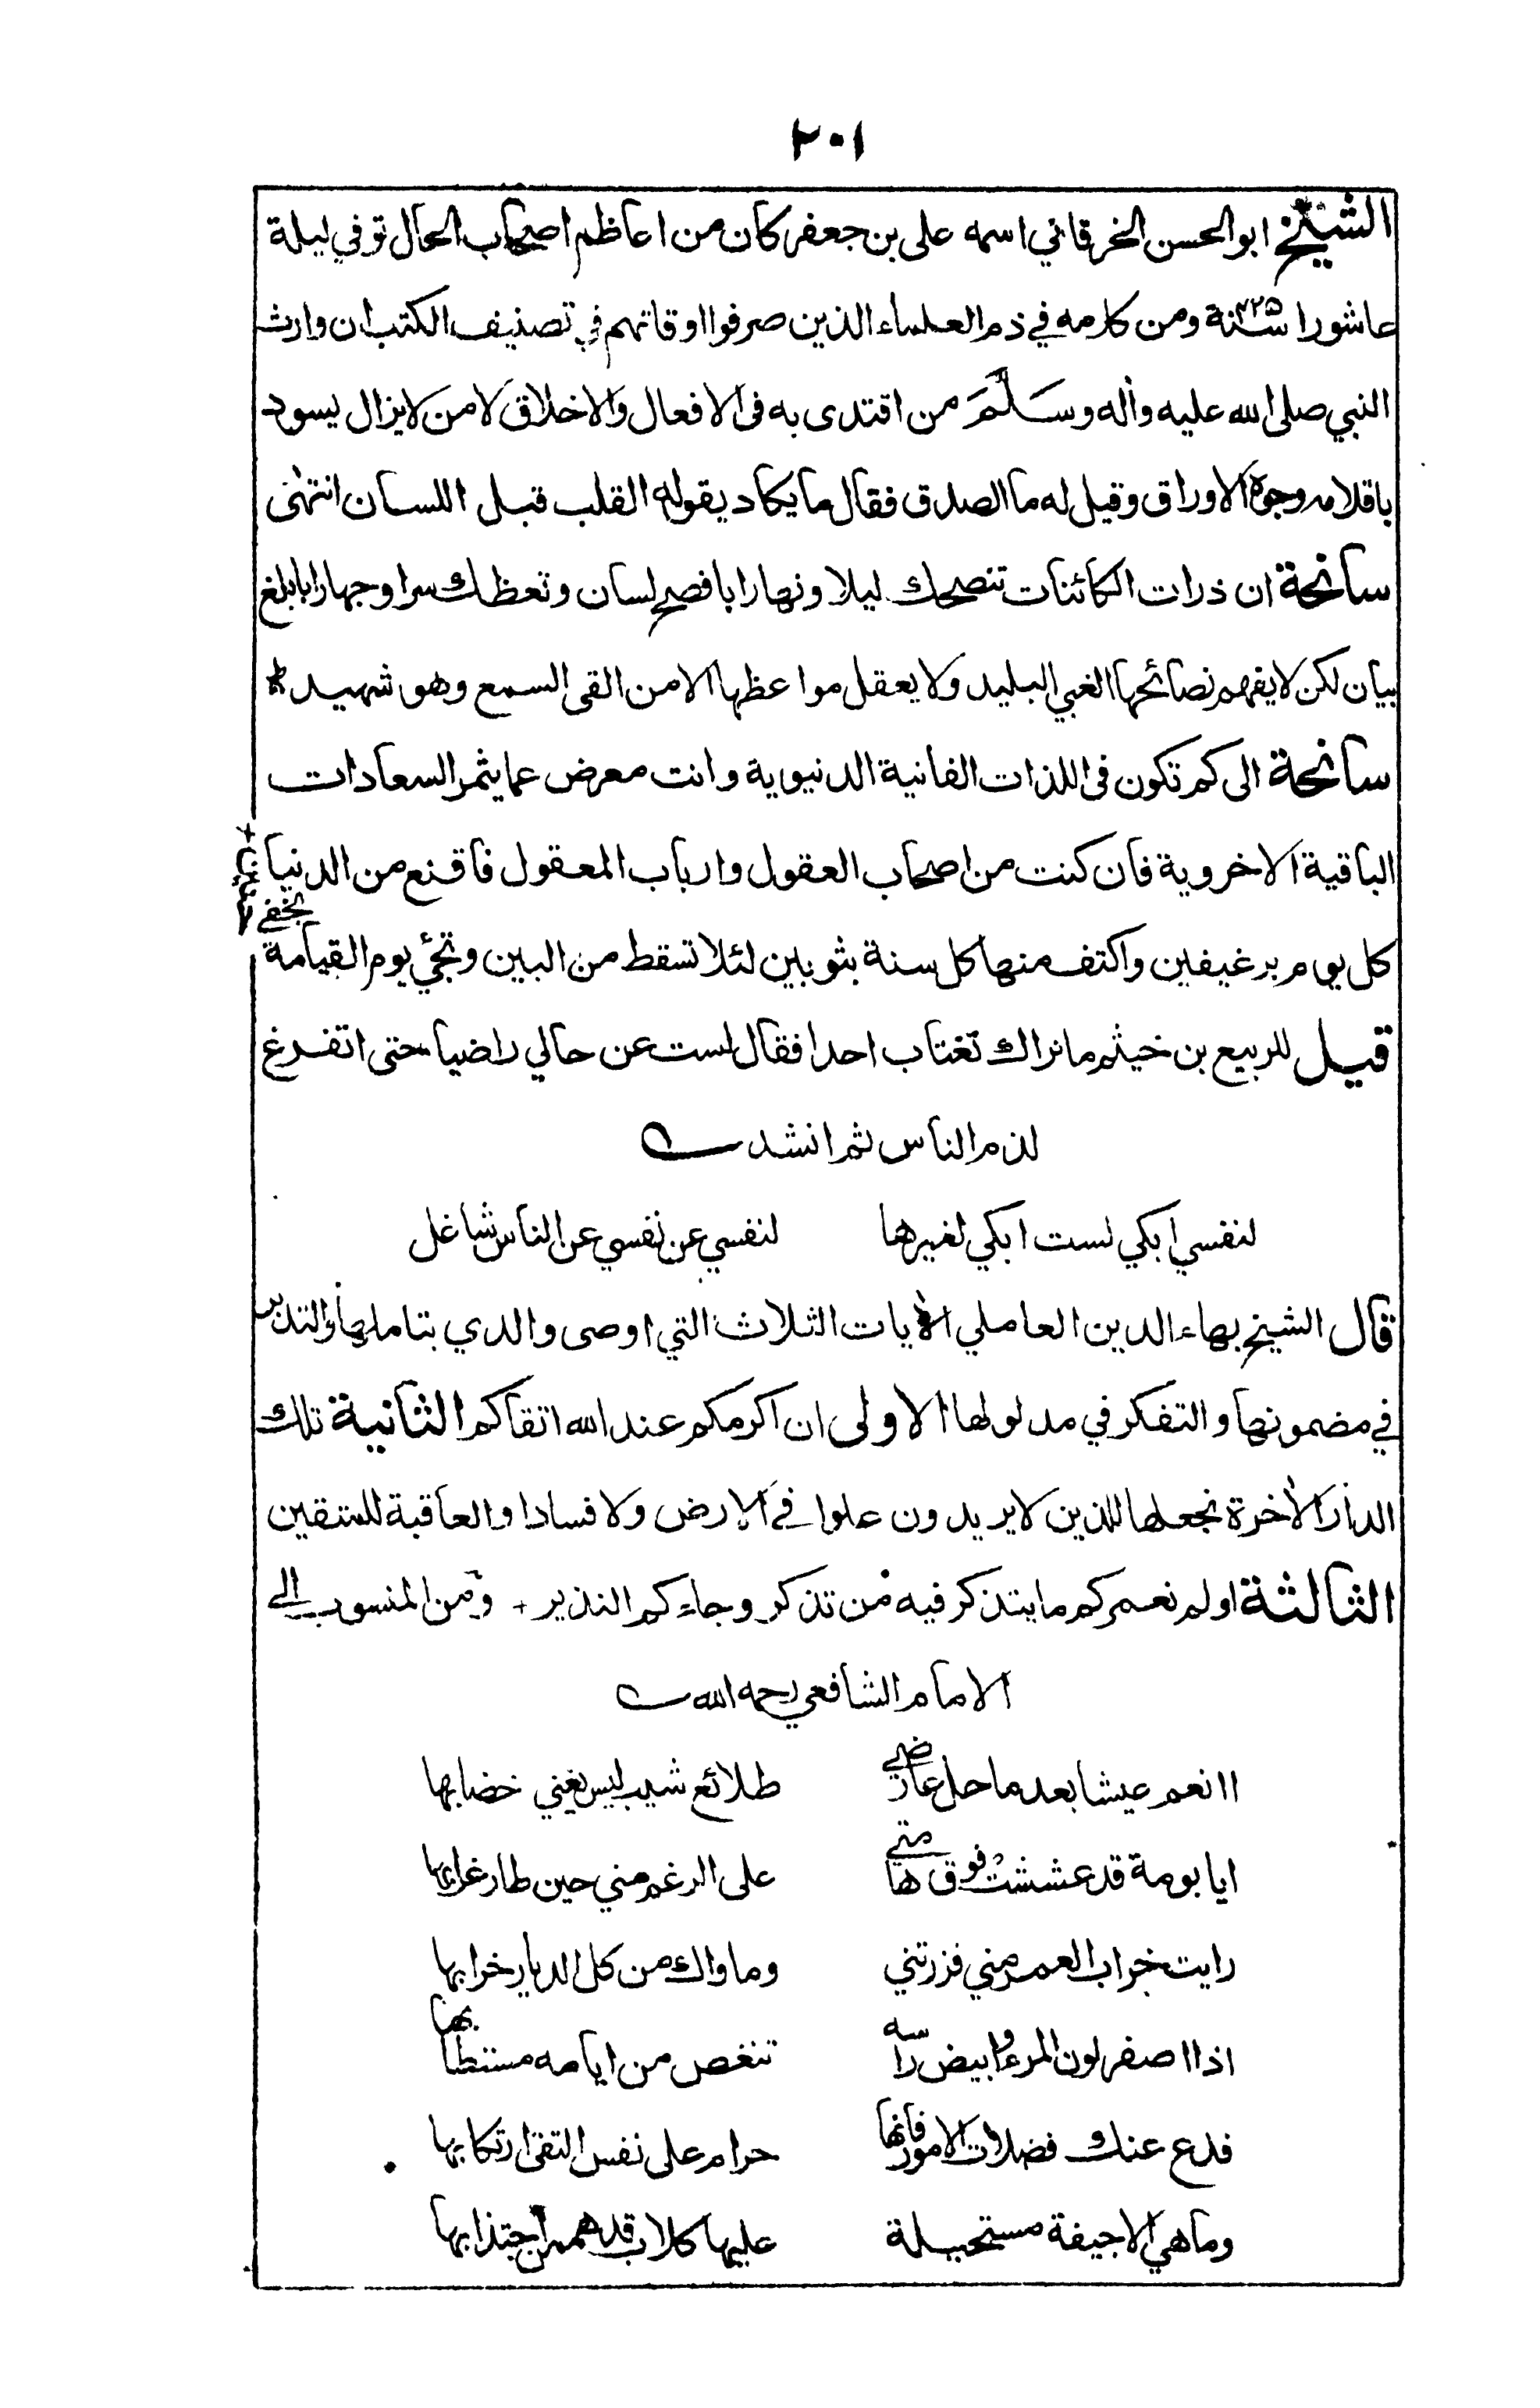 ٢٠١
الشيخ ابو الحسن الخرقاني اسمه على بن جعفر كان من اعاظم اصحاب الحال توفي ليلة
عاشورا سنة ٤٢٥ ومن كلامه في ذم العلماء الذين صرفوا اوقاتهم في تصنيف الكتب ان وارث
النبي صلى الله عليه واٰله وسَلَّمَ من اقتدى به فى الافعال والاخلاق لا من لايزال يسود
باقلامه وجوه الاوراق وقيل له ما الصدق فقال ما يكاد يقوله القلب قبل اللسان انتهٰى
سانحة ان ذرات الكائنات تنصحك ليلا ونهارا بافصح لسان وتعظك سرا وجهارا بابلغ
بيان لكن لا يفهم نصائحها الغبي البليد ولا يعقل مواعظها الا من القى السمع وهو شهيد
سانحة الى كم تكون فى اللذات الفانية الدنيوية وانت معرض عما يثمر السعادات
الباقية الاخروية فان كنت من اصحاب العقول وارباب المعقول فاقنع من الدنيا
كل يوم برغيفين واكتف منها كل سنة بثوبين لئلا تسقط من البين وتجئ يوم القيامة
بخفي حنين
قيل للربيع بن خيثم ما نراك تغتاب احدا فقال لست عن حالي راضيا حتى اتفرغ
لذم الناس ثم انشد
لنفسي ابكي لست ابكي لغيرها لنفسي عن نفسي عن الناس شاغل
قال الشيخ بهاء الدين العاملي الاٰيات الثلاث التي اوصى والدي بتاملها والتدبر
في مضمونها والتفكر في مدلولها الاولى ان اكرمكم عند الله اتقاكم الثانية تلك
الدار الاٰخرة نجعلها للذين لا يريدون علوا في الارض ولا فسادا والعاقبة للمتقين
الثالثة اولم نعمركم ما يتذكر فيه من تذكر وجاءكم النذير + ومن المنسوب الى
الامام الشافعي رحمه الله
اانعم عيشا بعد ما حل عارضي طلائع شيب ليس يغني خضابها
ايا بومة قد عششت فوق هامتي على الرغم مني حين طار غرابها
رايت خراب العمر مني فزرتني وماواك من كل الديار خرابها
اذا اصفر لون المرء وابيض راسه تنغص من ايامه مستطابها
فدع عنك فضلات الامور فانها حرام على نفس التقى ارتكابها
وما هي الا جيفة مستحيلة عليها كلاب همهن اجتذابها